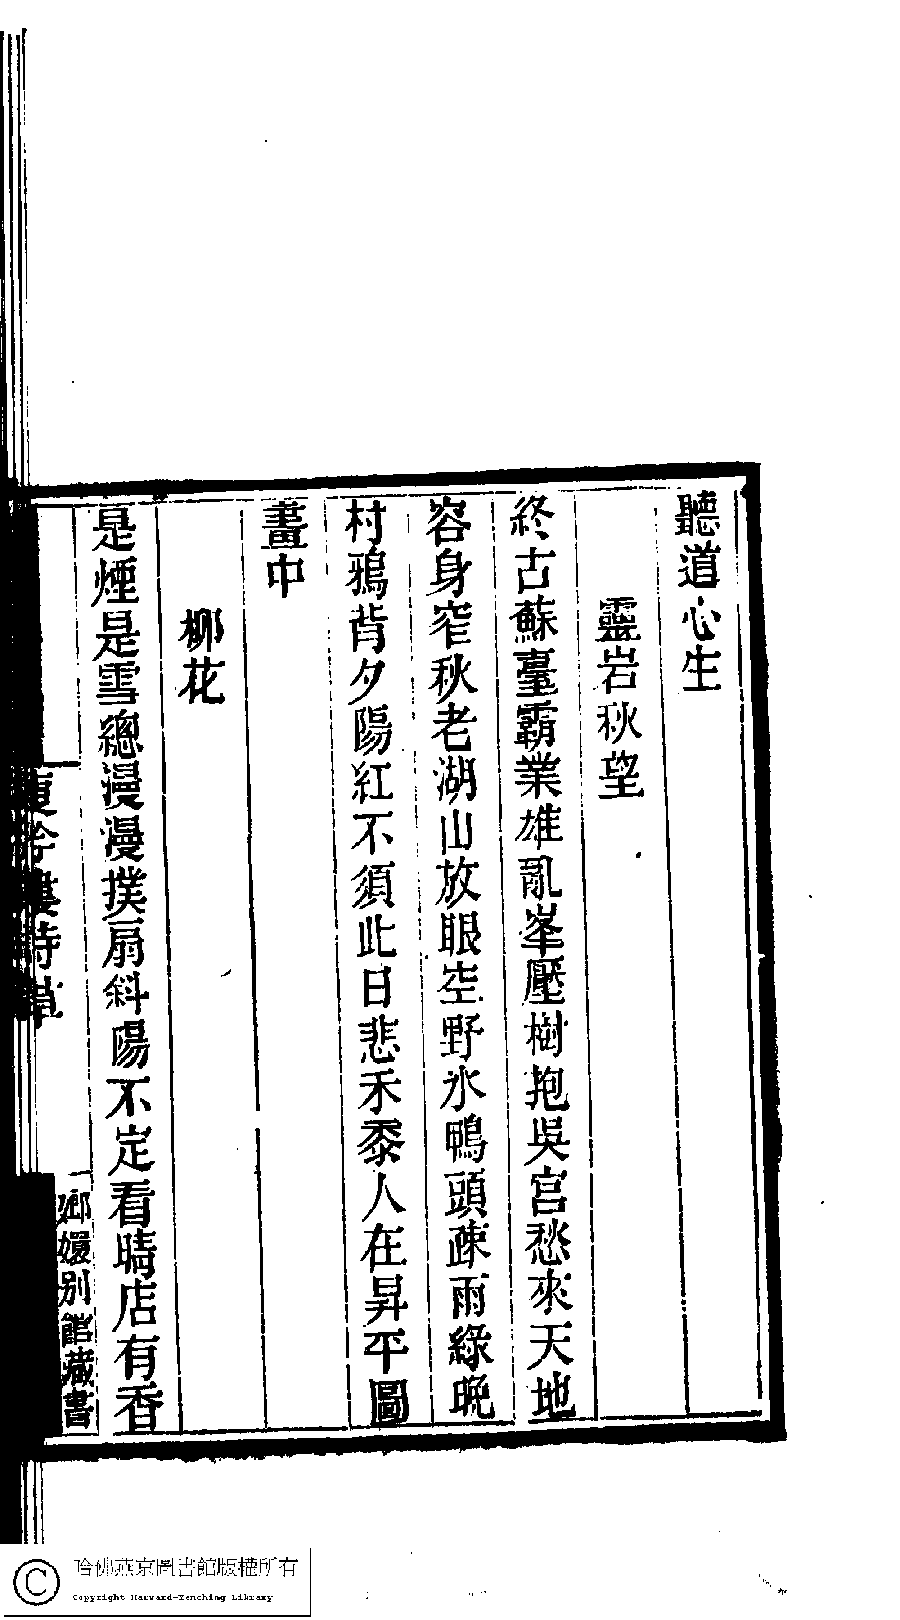 聽道心生
靈岩秋望
終古蘇臺霸業雄亂峯壓樹抱吳宮愁來天地
容身窄秋老湖山放眼空野水鴨頭疎雨綠晚
村鴉背夕陽紅不須此日悲禾黍人在昇平圖
畫中
柳花
是煙是雪總漫漫撲扇斜陽不定看晴店有香
詩草
嫏嬛別館藏書
哈佛燕京圖書館版權所有
Copyright Harvard-Yenching Library